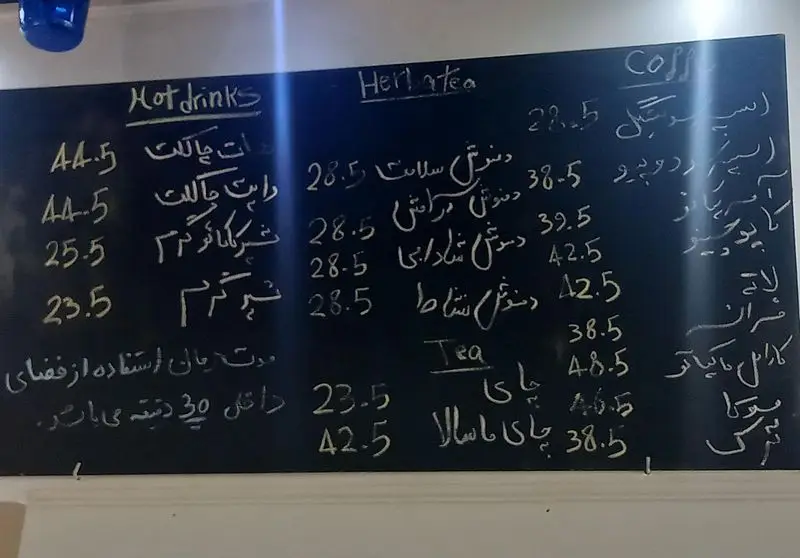 Coff
اسپرسو سینگل 28.5
اسپرسو دوبیو 38.5
آمریکانو 39.5
کاپوچینو 42.5
لاته 42.5
فرانسه 38.5
کارامل ماکیاتو 48.5
موکا 46.5
ترک 38.5
Herbatea
دمنوش سلامت 28.5
دمنوش آرامش 28.5
دمنوش شادابی 28.5
دمنوش نشاط 28.5
Tea
چای 23.5
چای ماسالا 42.5
Hot drinks
هات چاکلت 44.5
وایت چاکلت 44.5
شیرکاکائو گرم 25.5
شیر گرم 23.5
مدت زمان استفاده از فضای
داخل 30 دقیقه می باشد.